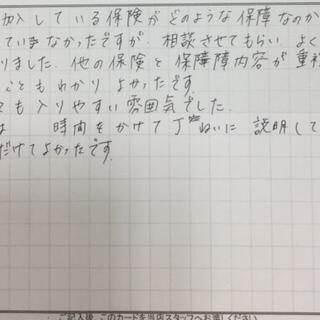 加入している保険がどのような保障なのか
ていきなかったですが、相談させてもらい よく
りました。他の保険と保障障内容が重複
こともわかり よかったです。
ても入りやすい雰囲気でした。
は 時間をかけて丁ねいに 説明して
だけてよかったです。
ご記入後、このカードを当店スタッフへお渡しください